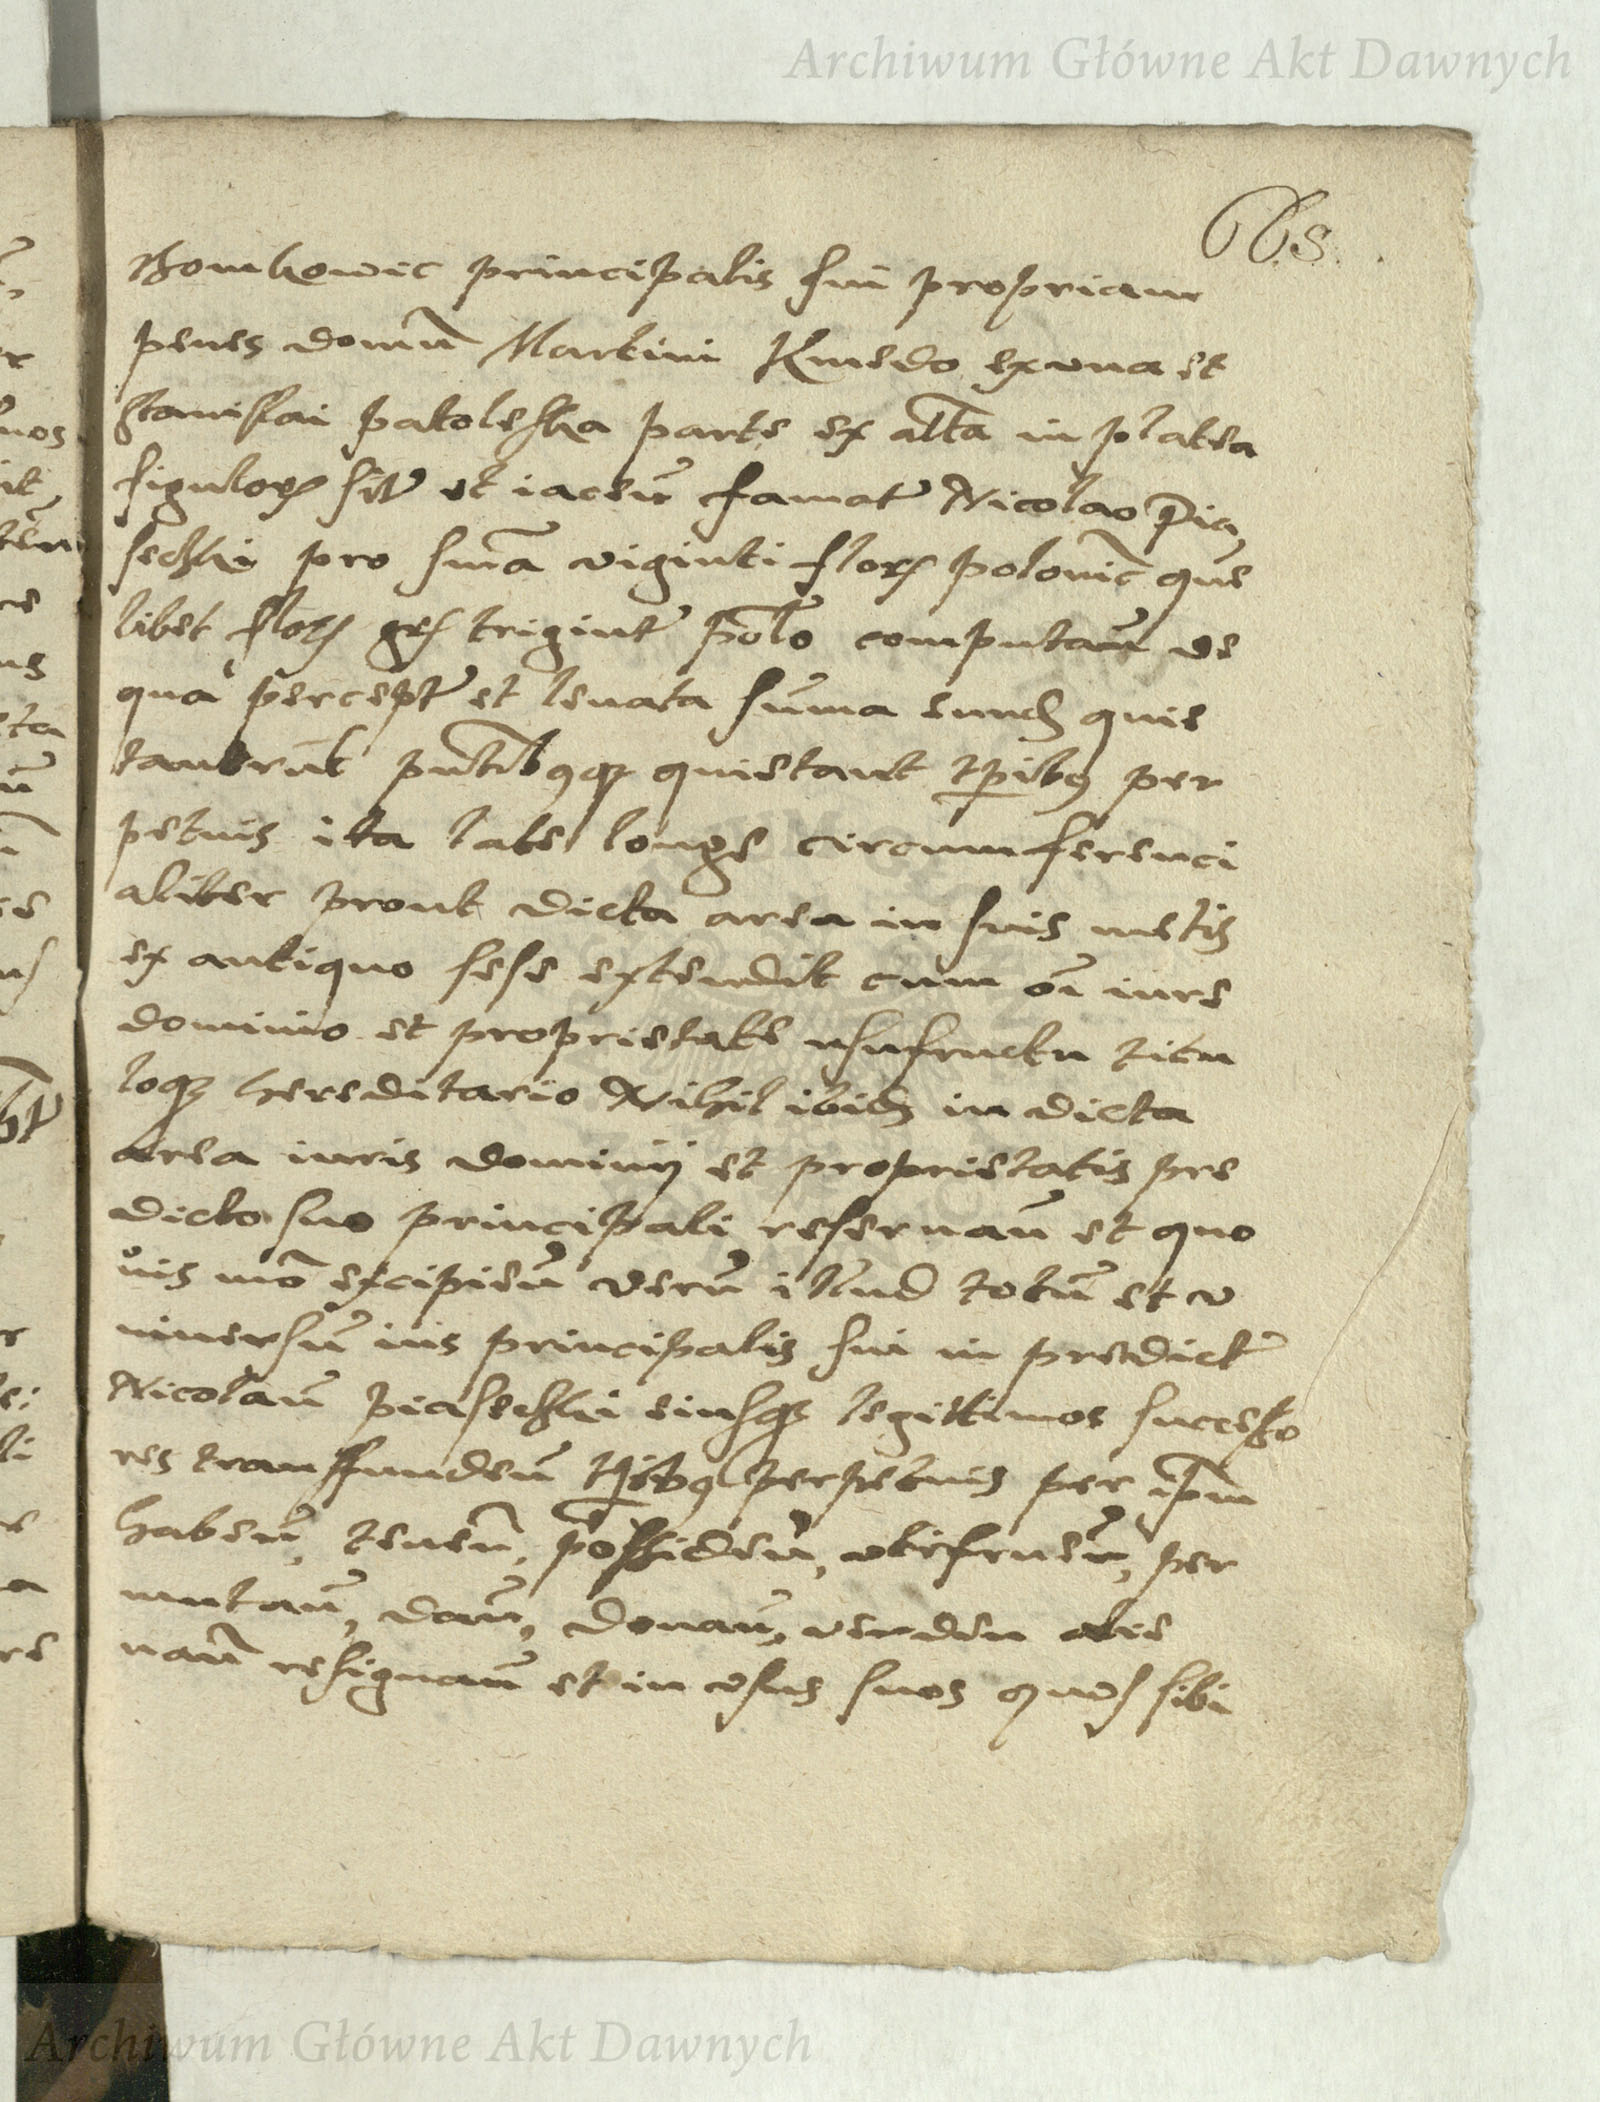 Archiwum Główne Akt Dawnych
668.
Thomkowic principalis sui propriam
penes domū Martini Kmedo ex vna et
Stanislai pakoleska parte ex alt̄a in platea
figulor̄ sit̄ et iaceñ famat̄ Nicolao Pia,
seczki pro sum̄a viginti flor̄ polonic̄ que
libet flor̄ gr̄ trigint̄ pol̄o computan̄ de
qua percept̄ et leuata sum̄a eund̄ quie
tauerūt pn̄tibusq̢ quietant tp̄ibus per
petuis ita late longe circumferenci
aliter prout dicta area in suis metis
ex antiquo sese extendit cum oī iure
dominio et proprietate vsufructu titu
loq̢ hereditario Nihil ibid̄ in dicta
area iuris dominij et proprietatis pre
dicto suo principali reseruan̄ et quo
uis mō excipien̄ verū illud totū et v
niuersū ius principalis sui in predict̄
Nicolaū piaseczki eiusq̢ legittimos successo
res transfunden̄ tp̄ibus perpetuis per ip̄m
haben̄, tenen̄, possiden̄, vtifruen̄, per
mutan̄, dan̄, donan̄, venden alie
nan̄ resignan̄ et in vsus suos quos sibi
Archiwum Główne Akt Dawnych